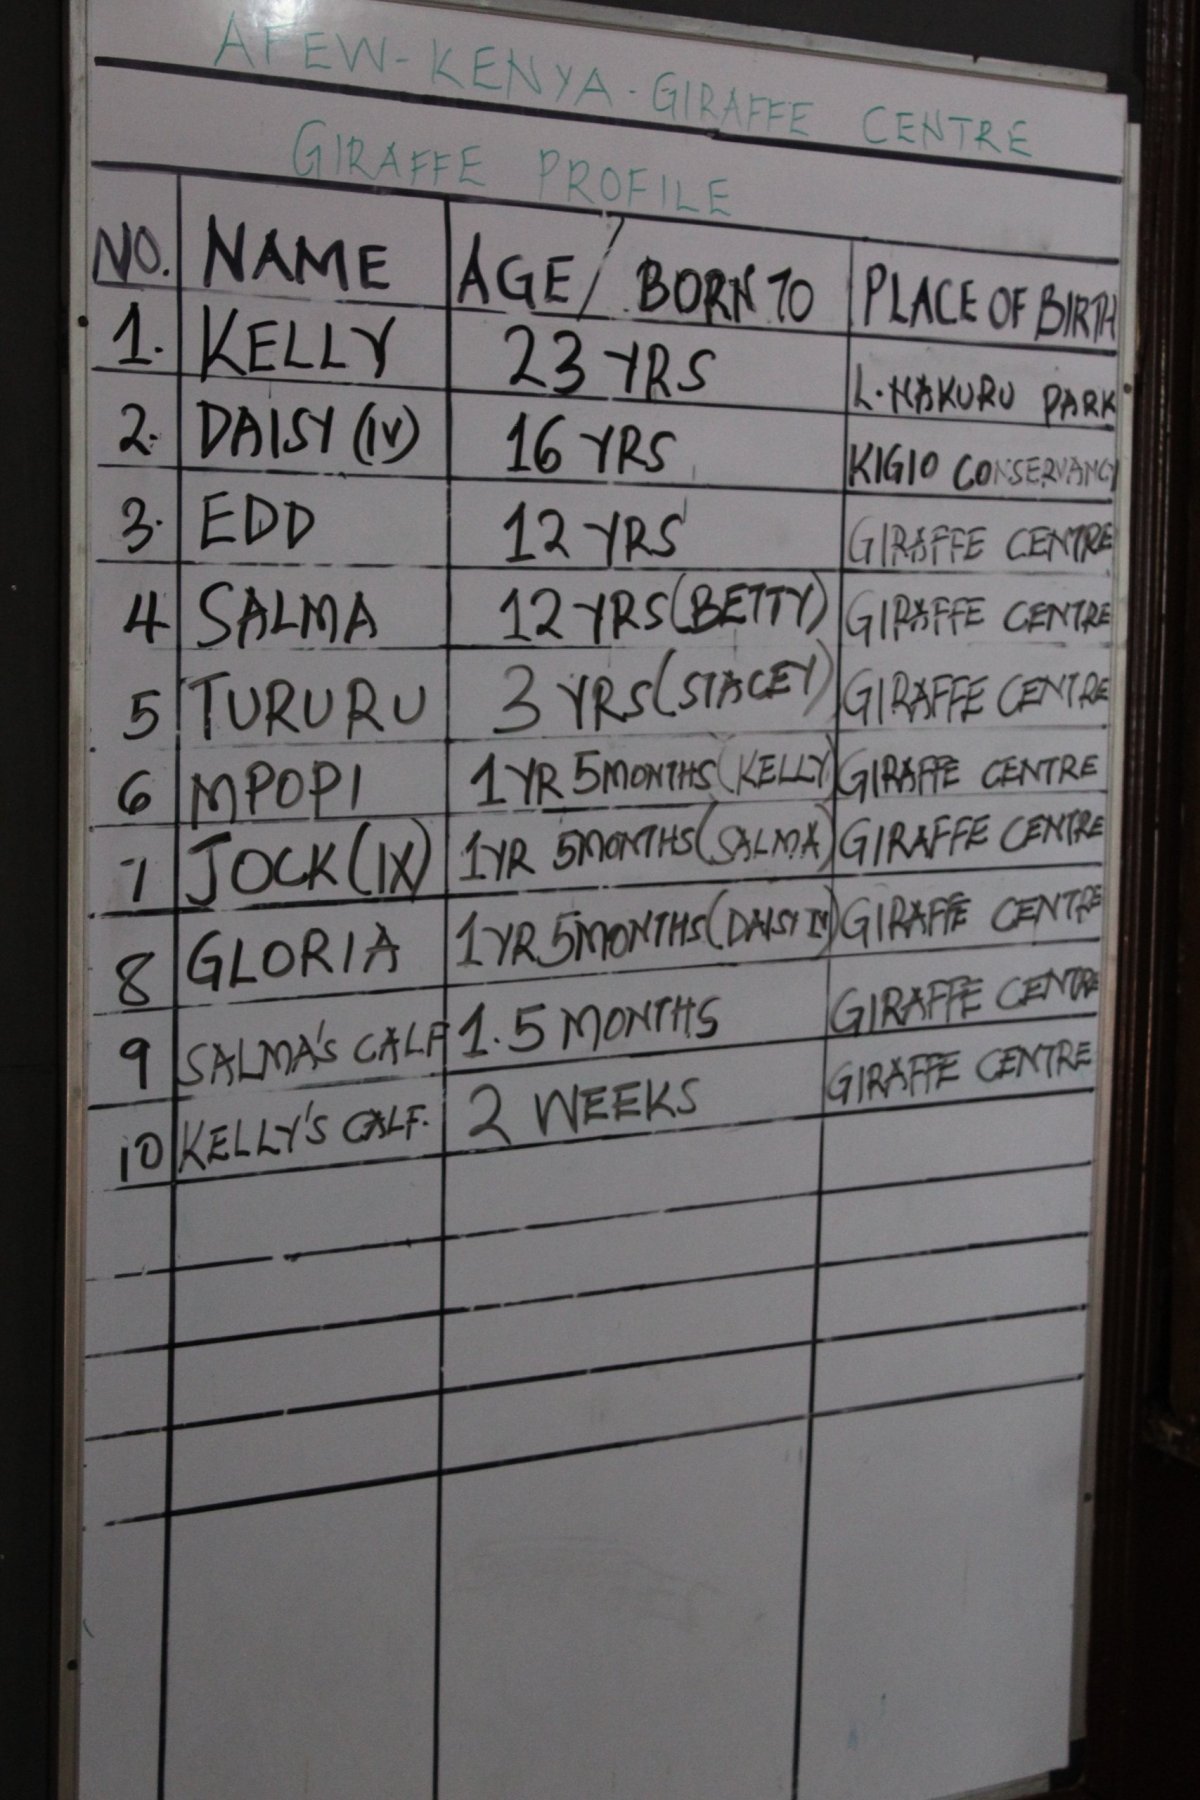 AFEW-KENYA-GIRAFFE CENTRE
GIRAFFE PROFILE
NO. NAME AGE / BORN TO PLACE OF BIRTH
1. KELLY 23 YRS L. NAKURU PARK
2. DAISY (IV) 16 YRS KIGIO CONSERVANCY
3. EDD 12 YRS GIRAFFE CENTRE
4 SALMA 12 YRS (BETTY) GIRAFFE CENTRE
5 TURURU 3 YRS (STACEY) GIRAFFE CENTRE
6 MPOPI 1 YR 5 MONTHS (KELLY) GIRAFFE CENTRE
7 JOCK (IX) 1 YR 5 MONTHS (SALMA) GIRAFFE CENTRE
8 GLORIA 1 YR 5 MONTHS (DAISY IV) GIRAFFE CENTRE
9 SALMA'S CALF 1.5 MONTHS GIRAFFE CENTRE
10 KELLY'S CALF. 2 WEEKS GIRAFFE CENTRE